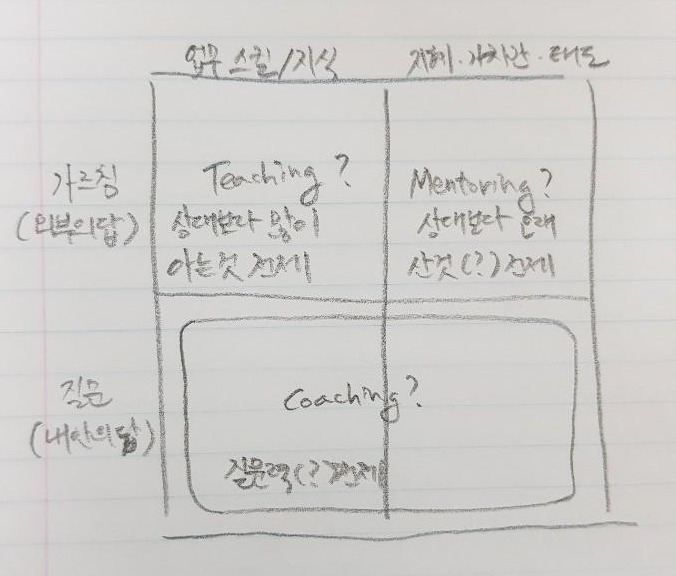 업무 스킬/지식
지혜·가치관·태도
가르침
(외부의답)
Teaching?
상대보다 많이
아는것 전제
Mentoring?
상대보다 오래
산것(?)전제
질문
(내안의답)
Coaching?
질문력(?)전제